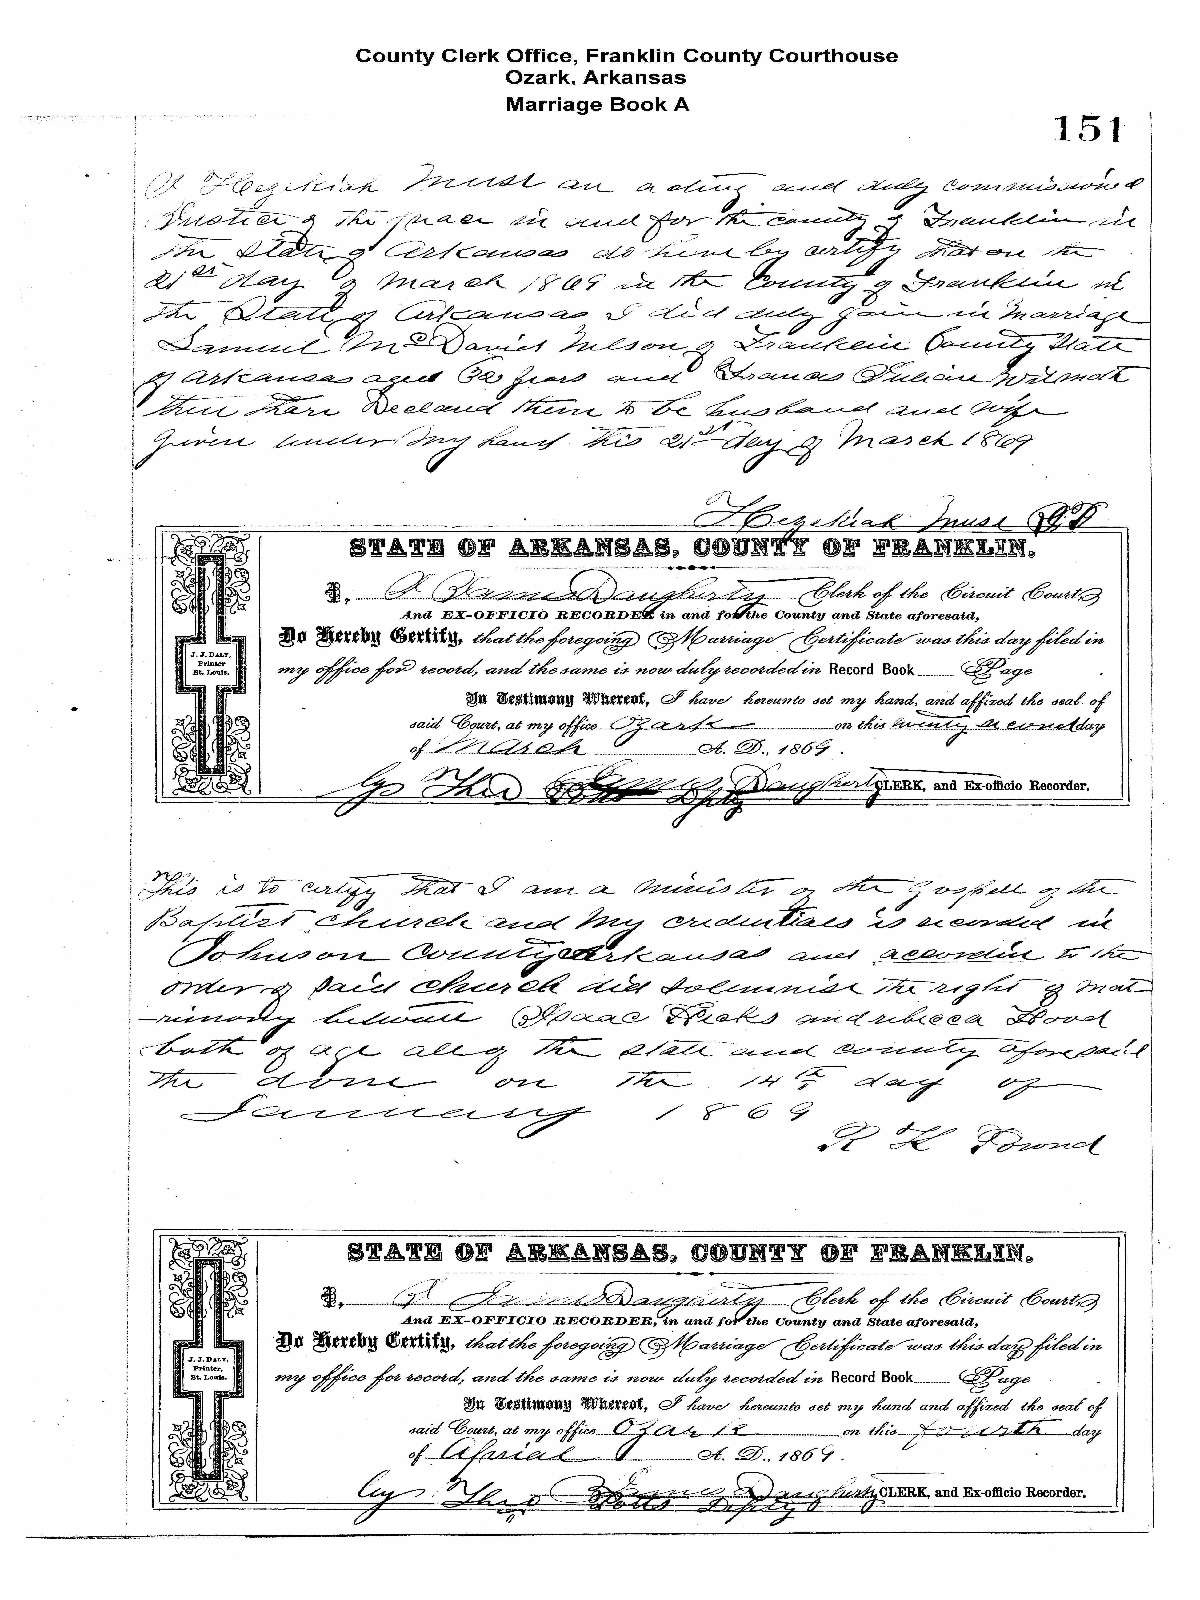 County Clerk Office, Franklin County Courthouse
Ozark, Arkansas
Marriage Book A
151
I Hezekiah Muse an acting and duly commissioned
Justice of the peace in and for the county of Franklin in
the State of Arkansas do hereby certify that on the
21st day of March 1869 in the County of Franklin in
the State of Arkansas I did duly join in Marriage
Samuel McDavid Nelson of Franklin County State
of Arkansas aged years and Frances Julian Wilmoth
then thare Declared them to be husband and wife
Given under my hand this 21st day of March 1869
Hezekiah Muse JP
STATE OF ARKANSAS, COUNTY OF FRANKLIN.
I, Daugherty Clerk of the Circuit Court
And EX-OFFICIO RECORDER in and for the County and State aforesaid,
Do Hereby Certify, that the foregoing Marriage Certificate was this day filed in
my office for record, and the same is now duly recorded in Record Book Page
In Testimony Whereof, I have hereunto set my hand, and affixed the seal of
said Court, at my office Ozark on this twenty second day
of March A. D., 1869.
J. J. DALY,
Printer
St. Louis.
By Theo Potts Depty James Daugherty CLERK, and Ex-officio Recorder.
This is to certify that I am a minister of the Gospell of the
Baptist church and my credentials is recorded in
Johnson County Arkansas and accordin to the
order of said church did solemnise the right of mat
rimony between Isaac Hicks and rebecca Hood
both of age all of the state and county aforesaid
the done on the 14th day of
January 1869
R K Pound
STATE OF ARKANSAS, COUNTY OF FRANKLIN.
I, Daugherty Clerk of the Circuit Court
And EX-OFFICIO RECORDER, in and for the County and State aforesaid,
Do Hereby Certify, that the foregoing Marriage Certificate was this day filed in
my office for record, and the same is now duly recorded in Record Book Page
In Testimony Whereof, I have hereunto set my hand and affixed the seal of
said Court, at my office Ozark on this fourth day
of Aprial A. D., 1869.
J. J. DALY,
Printer,
St. Louis.
By Theo Potts Depty James Daugherty CLERK, and Ex-officio Recorder.